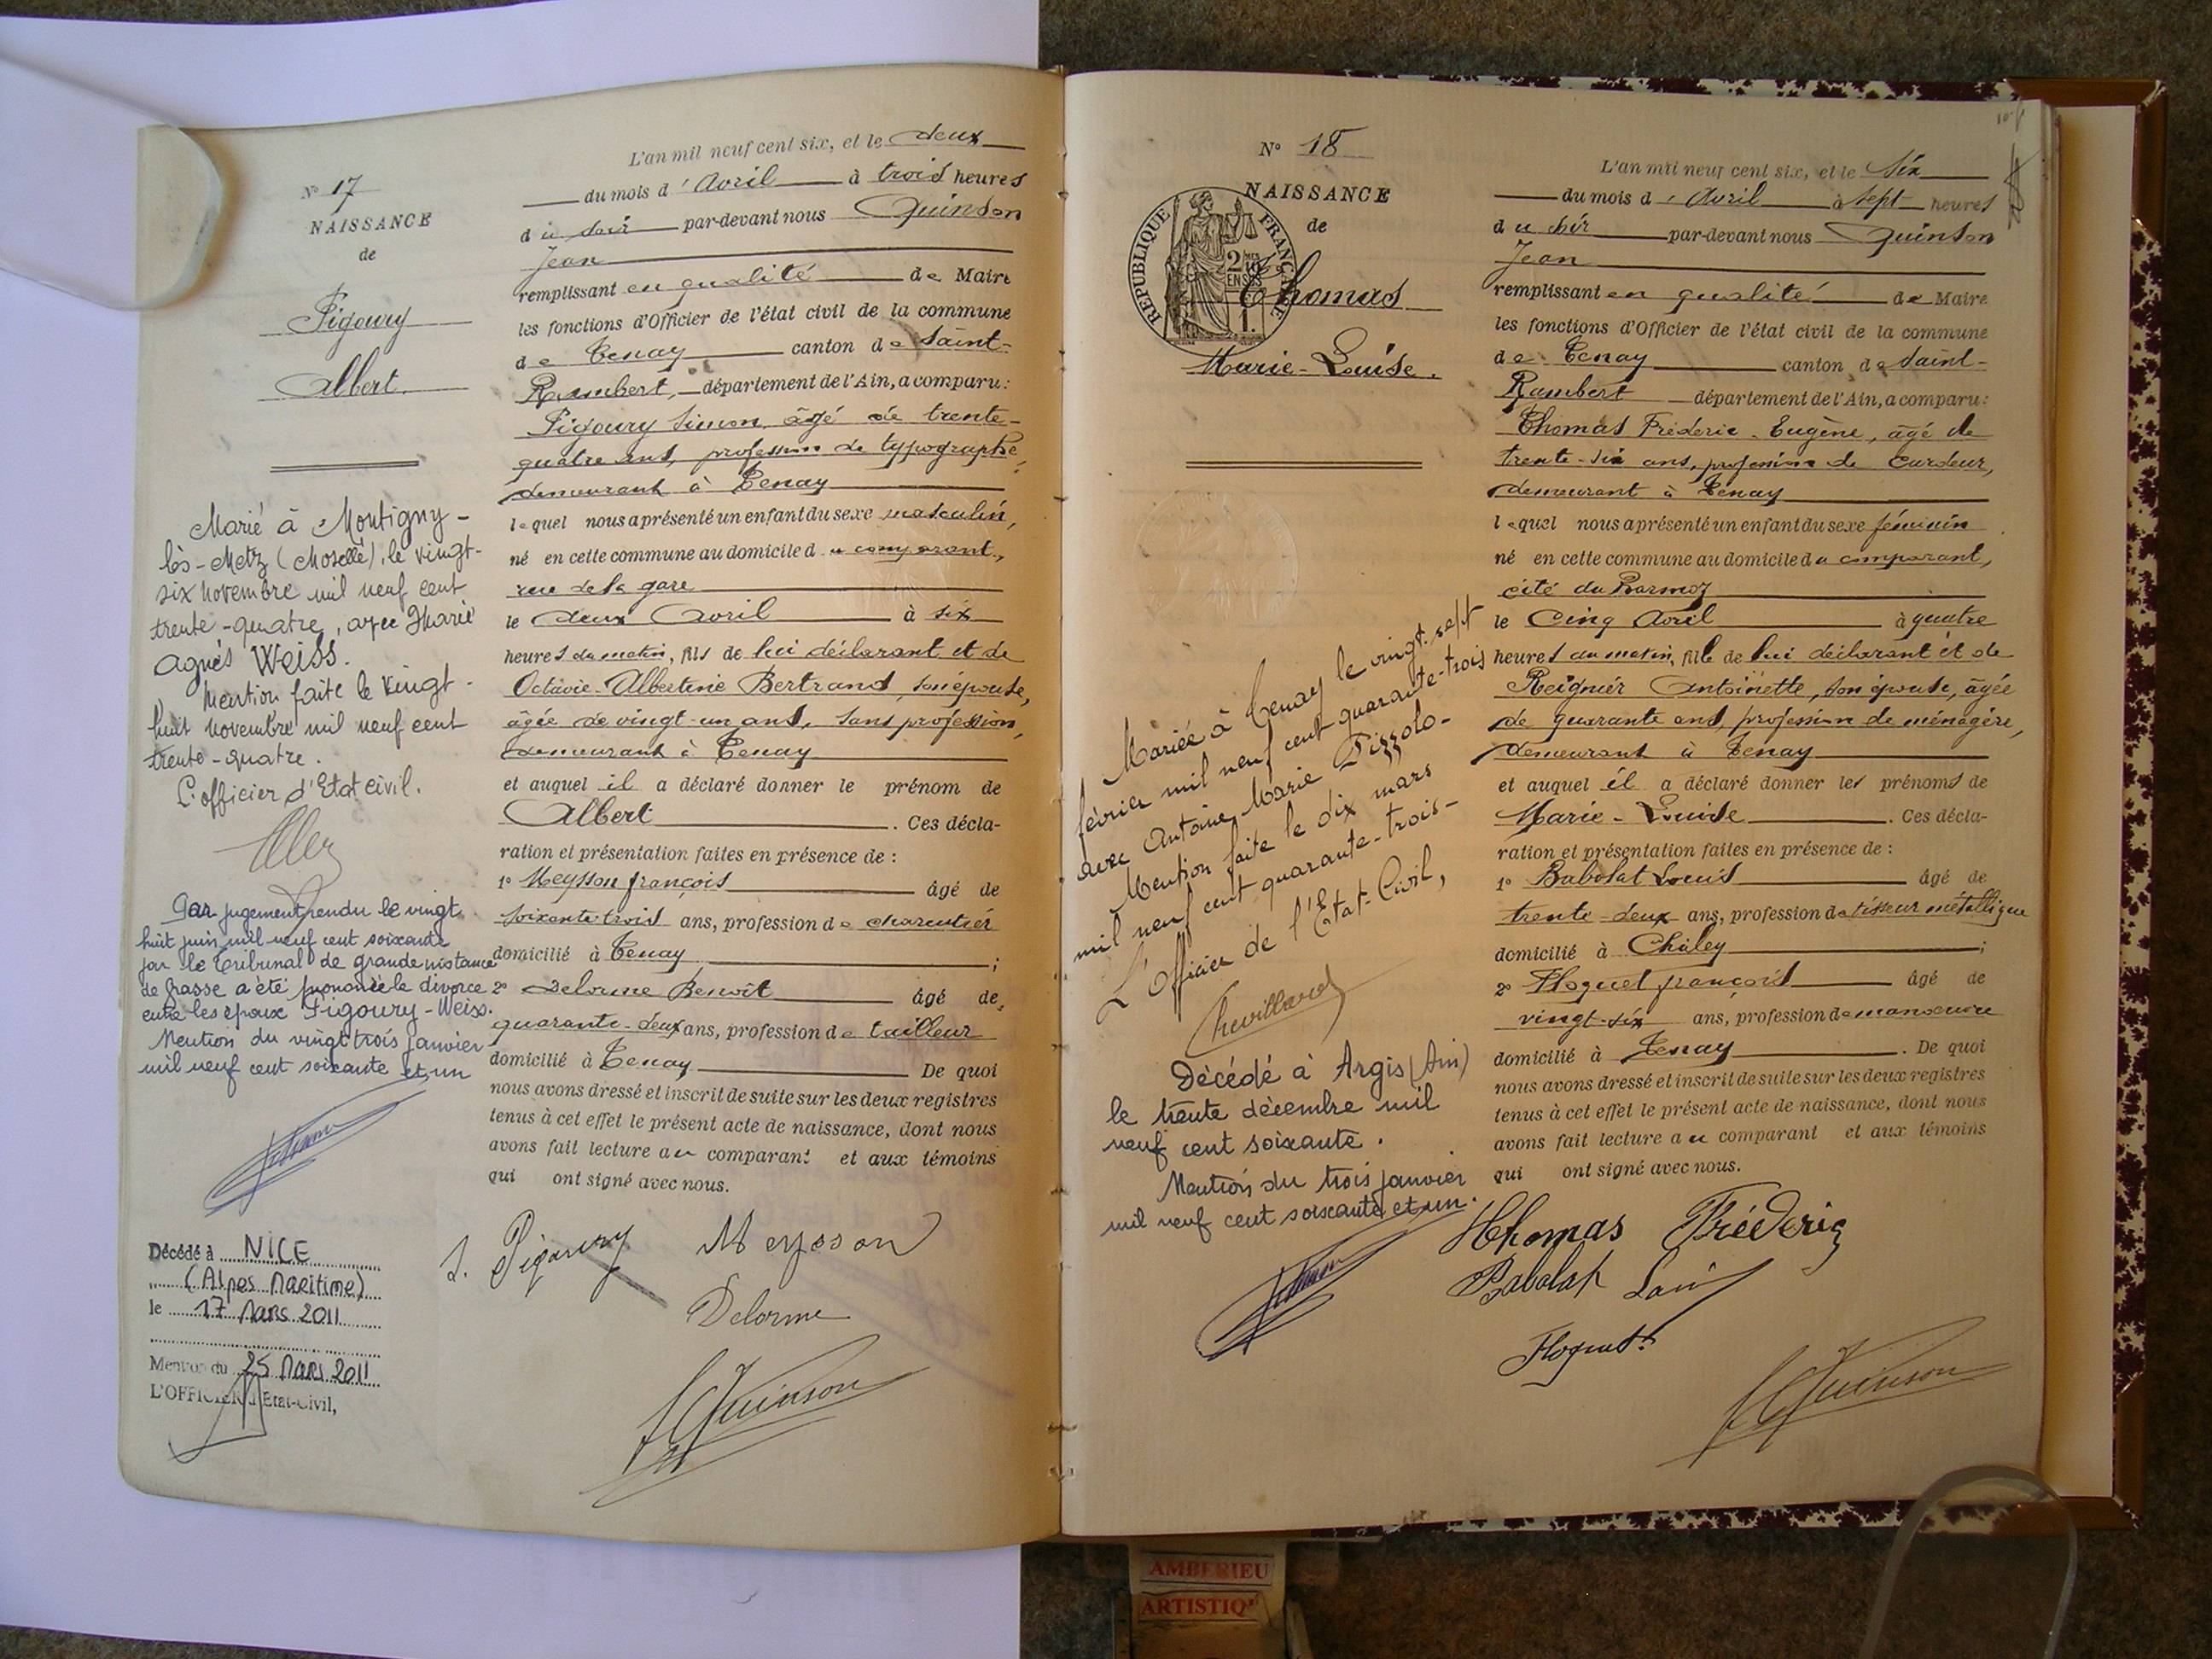 N° 17
NAISSANCE
de
Pigoury
Albert.
Marié à Montigny-
lès-Metz (Moselle), le vingt-
six novembre mil neuf cent
trente-quatre, avec Marie
Agnès Weiss.
Mention faite le vingt-
huit novembre mil neuf cent
trente-quatre.
L'officier d'Etat civil.
Par jugement rendu le vingt
huit juin mil neuf cent soixante
par le Tribunal de grande instance
de Grasse a été prononcé le divorce
entre les époux Pigoury-Weiss.
Mention du vingt trois janvier
mil neuf cent soixante et un
Décédé à NICE
(Alpes Maritime)
le 17 Mars 2011
Mention du 25 Mars 2011
L'OFFICIER d'Etat-Civil,
L'an mil neuf cent six, et le deux
du mois d'Avril à trois heures
du soir par-devant nous Quinson
Jean
remplissant en qualité de Maire
les fonctions d'Officier de l'état civil de la commune
de Tenay canton de Saint-
Rambert, département de l'Ain, a comparu:
Pigoury Simon, âgé de trente-
quatre ans, profession de typographe,
demeurant à Tenay
lequel nous a présenté un enfant du sexe masculin,
né en cette commune au domicile du comparant,
rue de la gare
le deux Avril à six
heures du matin, fils de lui déclarant et de
Octavie-Albertine Bertrand, son épouse,
âgée de vingt-un ans, sans profession,
demeurant à Tenay
et auquel il a déclaré donner le prénom de
Albert . Ces décla-
ration et présentation faites en présence de :
1° Meysson françois âgé de
soixante trois ans, profession de charcutier
domicilié à Tenay ;
2° Delorme Benoît âgé de
quarante-deux ans, profession de tailleur
domicilié à Tenay De quoi
nous avons dressé et inscrit de suite sur les deux registres
tenus à cet effet le présent acte de naissance, dont nous
avons fait lecture au comparant et aux témoins
qui ont signé avec nous.
S. Pigoury Meysson
Delorme
Quinson
N° 18
NAISSANCE
de
REPUBLIQUE FRANÇAISE
2/10 EN SUS
Thomas
Marie-Louise.
Mariée à Tenay le vingt-sept
février mil neuf cent quarante-trois
avec Antoine Marie Pizzolo-
Mention faite le dix mars
mil neuf cent quarante-trois-
L'Officier de l'Etat-Civil,
Chevillard
Décédé à Argis (Ain)
le trente décembre mil
neuf cent soixante.
Mention du trois janvier
mil neuf cent soixante et un.
L'an mil neuf cent six, et le six
du mois d'Avril à sept heures
du soir par-devant nous Quinson
Jean
remplissant en qualité de Maire
les fonctions d'Officier de l'état civil de la commune
de Tenay canton de Saint-
Rambert département de l'Ain, a comparu:
Thomas Fréderic-Eugène, âgé de
trente-six ans, profession de cardeur,
demeurant à Tenay
lequel nous a présenté un enfant du sexe féminin
né en cette commune au domicile du comparant,
cité du
le Cinq Avril à quatre
heures du matin, fille de lui déclarant et de
Reignier Antoinette, son épouse, âgée
de quarante ans, profession de ménagère,
demeurant à Tenay
et auquel il a déclaré donner les prénoms de
Marie-Louise . Ces décla-
ration et présentation faites en présence de :
1° Babolat Louis âgé de
trente-deux ans, profession de tisseur métallique
domicilié à Chiley ;
2° Floquet françois âgé de
vingt-six ans, profession de manoeuvre
domicilié à Tenay . De quoi
nous avons dressé et inscrit de suite sur les deux registres
tenus à cet effet le présent acte de naissance, dont nous
avons fait lecture au comparant et aux témoins
qui ont signé avec nous.
Thomas Fréderic
Babolat Louis
Floquet
Quinson
AMBERIEU
ARTISTIQ